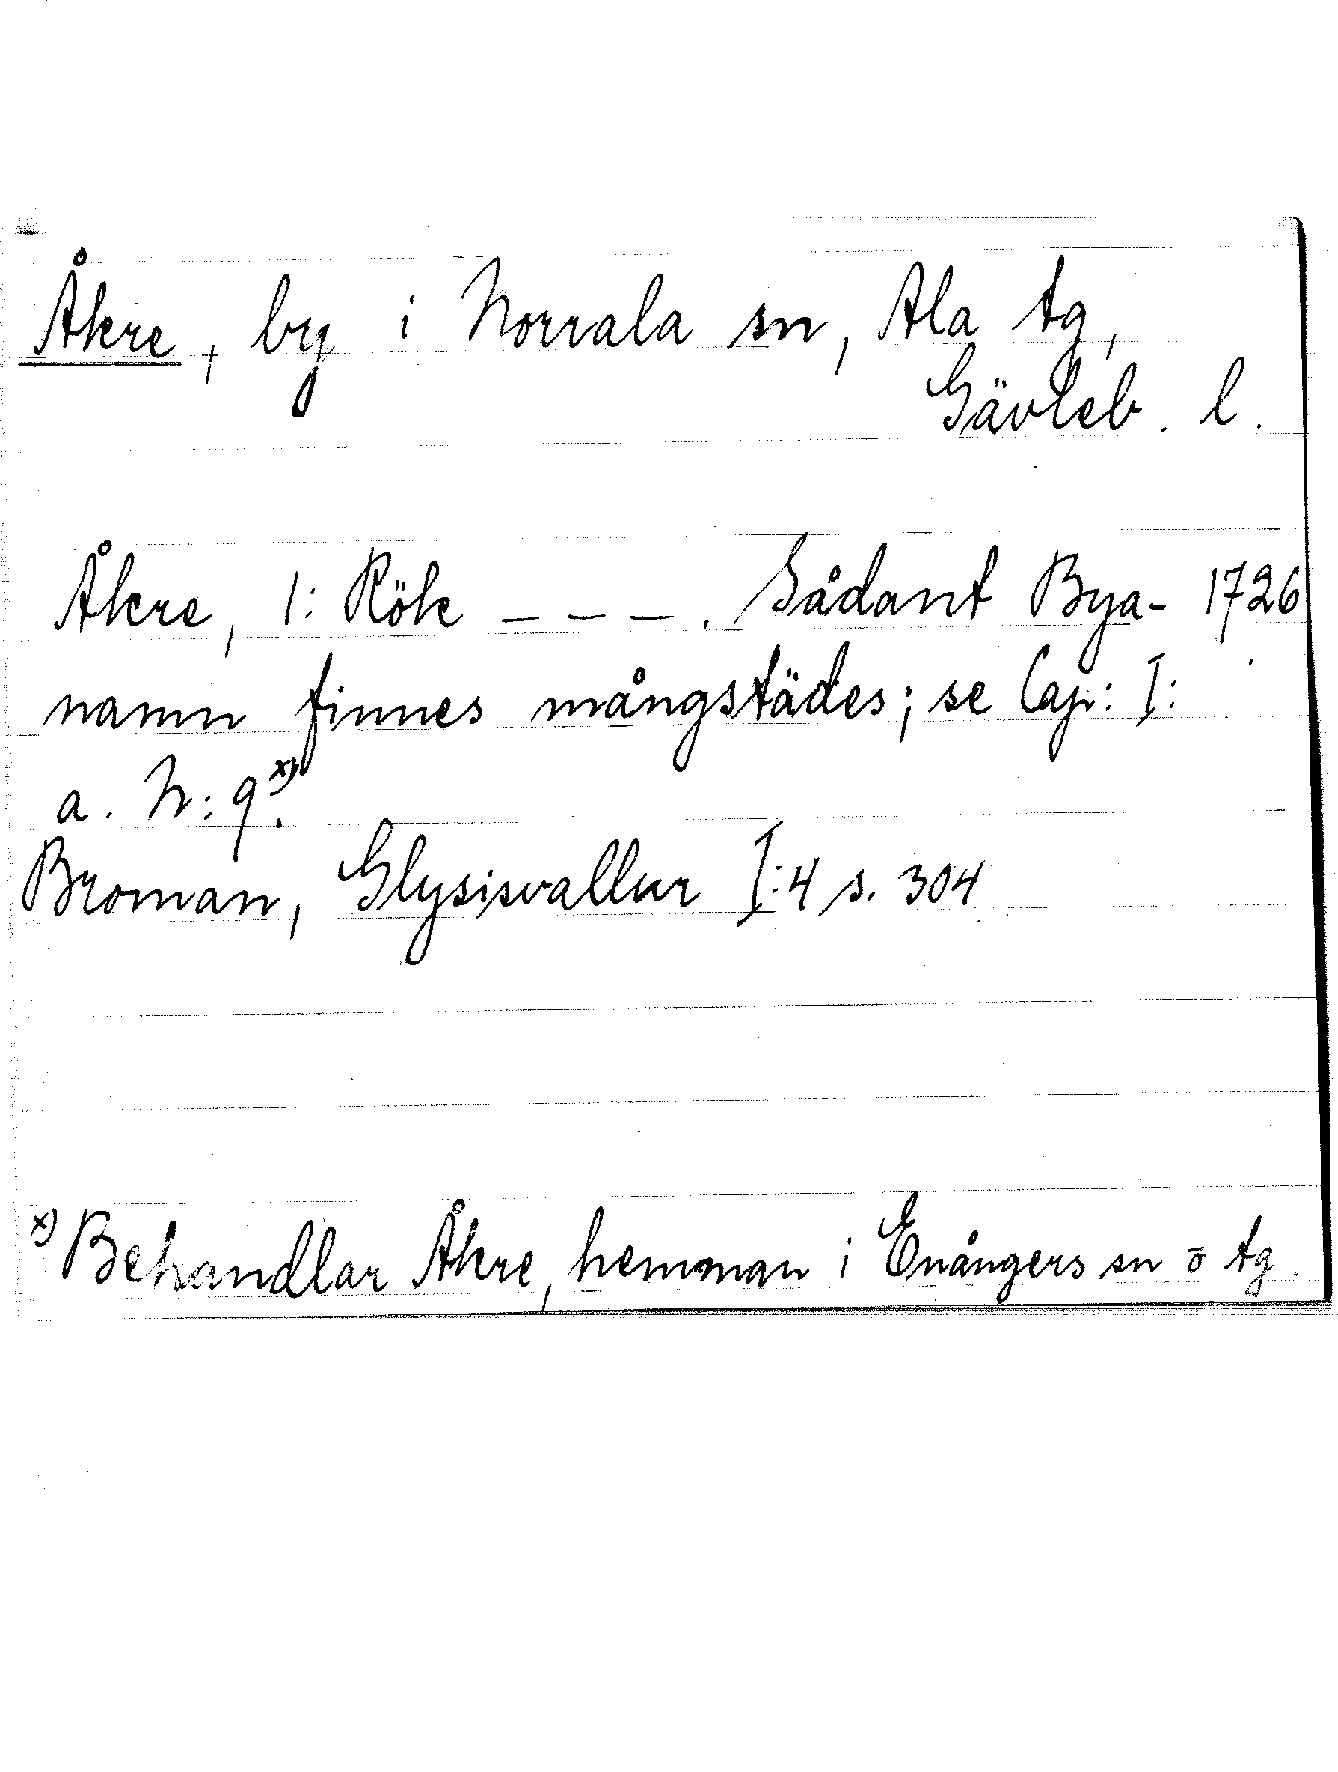 Åkre, by i Norrala sn, Ala tg,
Gävleb. l.
Åkre, 1: Rök _ _ _ . Sådant Bya- 1726
namn finnes mångstädes; se Cap: I:
a. N: 9.x)
Broman, Glysisvallur I:4 s. 304
x) Behandlar Åkre, hemman i Enångers sn o tg.